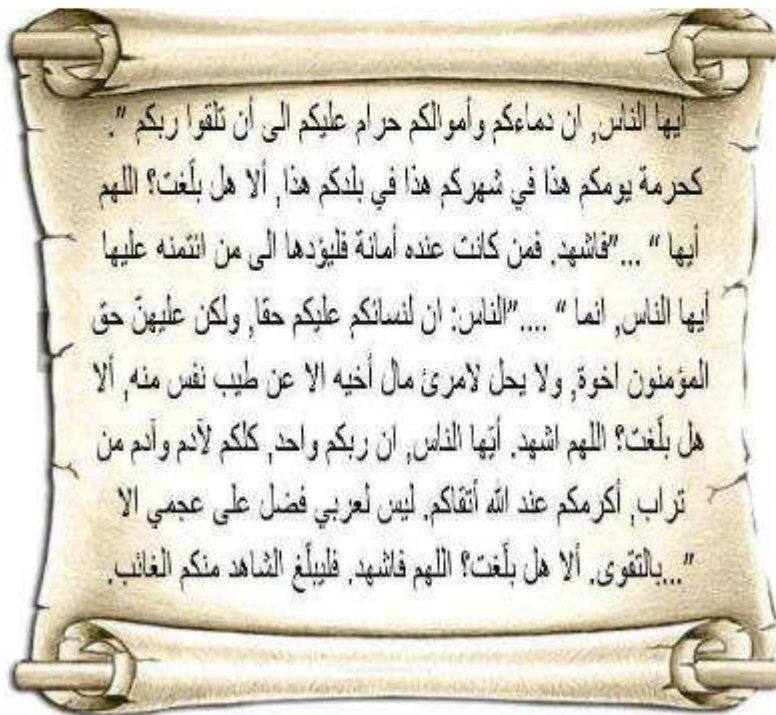 أيها الناس, ان دماءكم وأموالكم حرام عليكم الى أن تلقوا ربكم ".
كحرمة يومكم هذا في شهركم هذا في بلدكم هذا, ألا هل بلّغت؟ اللهم
فاشهد. فمن كانت عنده أمانة فليؤدها الى من ائتمنه عليها"... " أيها
الناس: ان لنسائكم عليكم حقا, ولكن عليهنّ حق".... " أيها الناس, انما
المؤمنون اخوة, ولا يحل لامرئ مال أخيه الا عن طيب نفس منه, ألا
هل بلّغت؟ اللهم اشهد. أيّها الناس, ان ربكم واحد, كلكم لآدم وآدم من
تراب, أكرمكم عند الله أتقاكم. ليس لعربي فضل على عجمي الا
بالتقوى. ألا هل بلّغت؟ اللهم فاشهد. فليبلّغ الشاهد منكم الغائب...."